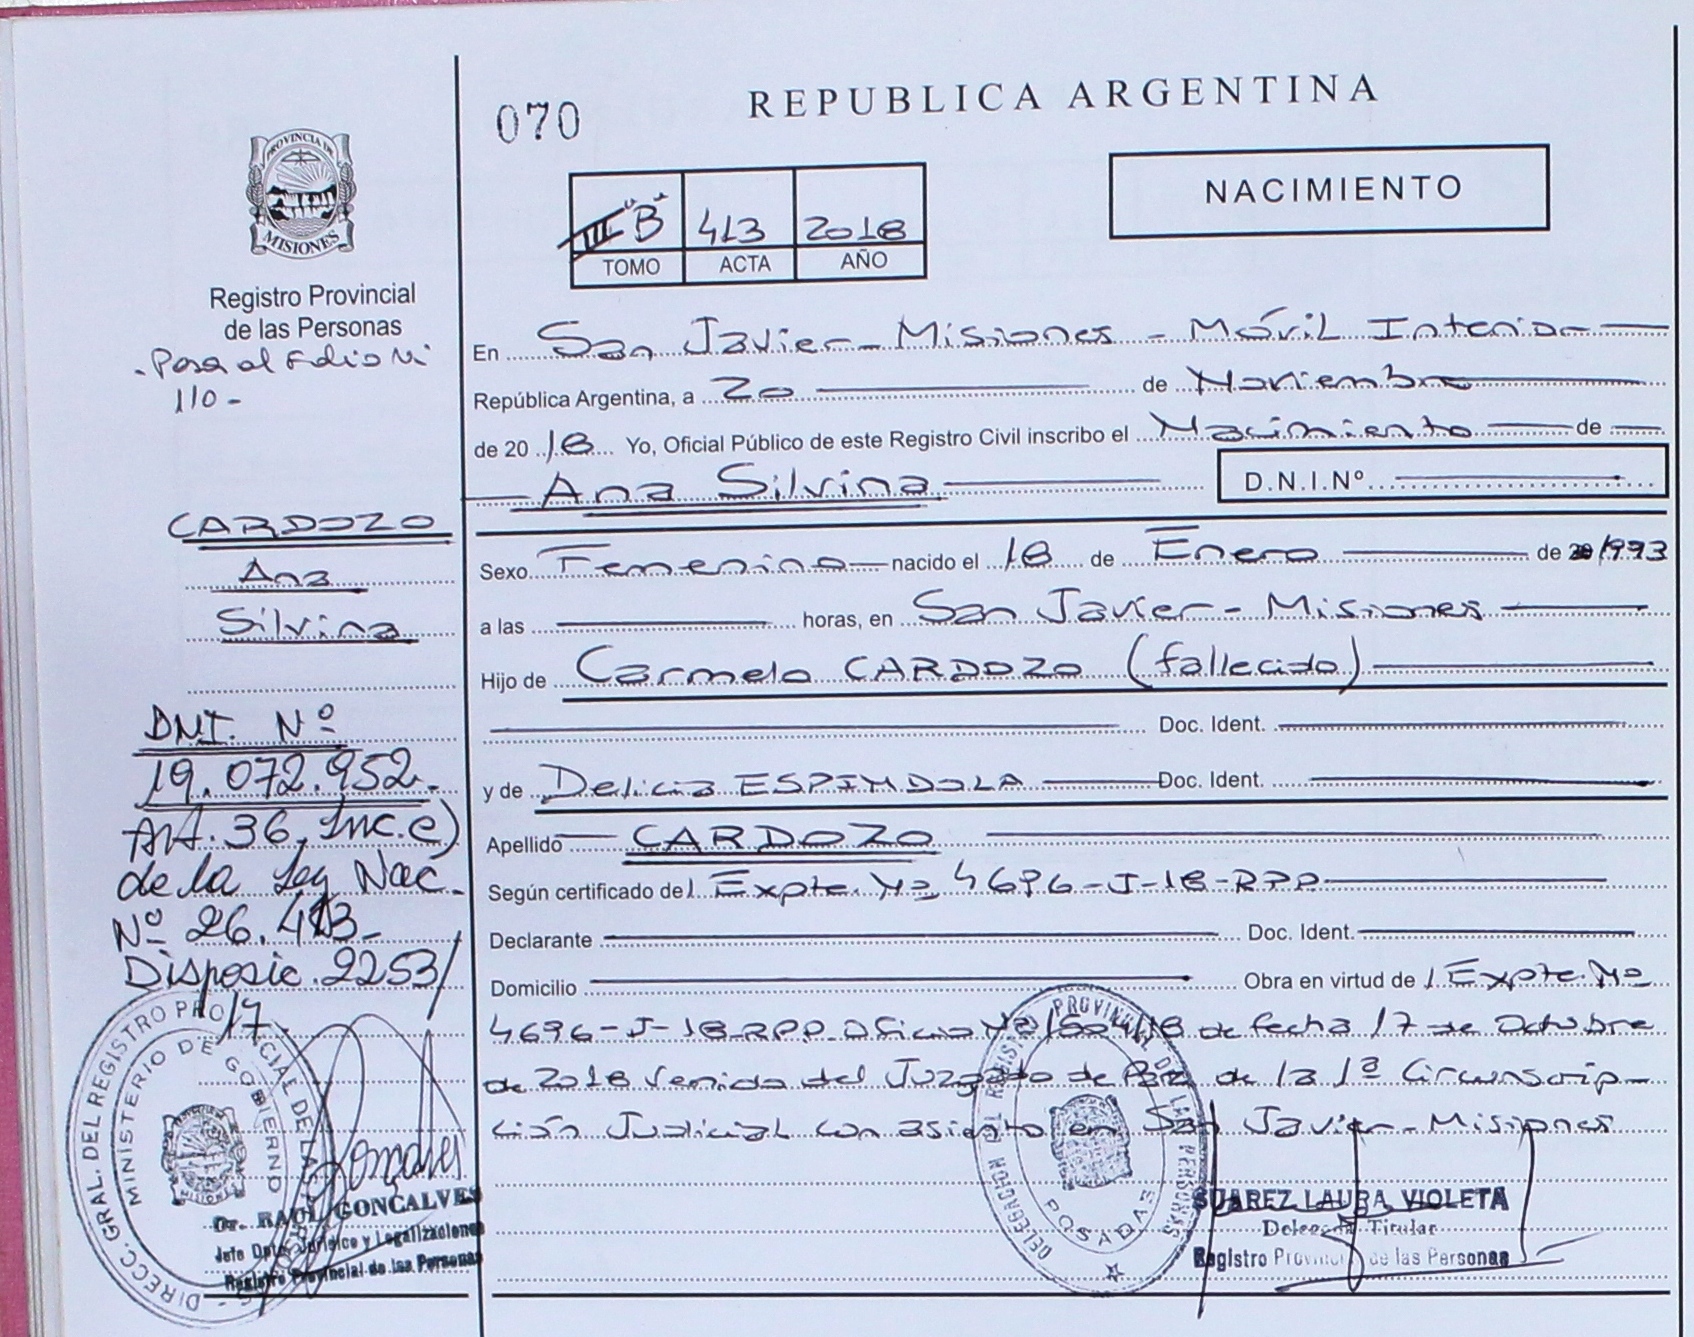 070
REPUBLICA ARGENTINA
NACIMIENTO
III "B" 413 2018
TOMO ACTA AÑO
PROVINCIA DE
MISIONES
Registro Provincial
de las Personas
- Pasa al Folio Nº
110 -
CARDOZO
Ana
Silvina
DNI. Nº
19.072.952.
Art. 36, Inc. e)
de la Ley Nac.
Nº 26.413-
Disposic. 2253/
/17.
DIRECC. GRAL. DEL REGISTRO PROVINCIAL DE LAS PERSONAS
MINISTERIO DE GOBIERNO
Dr. RAUL GONCALVES
Jefe Dpto. Jurídico y Legalizaciones
Registro Provincial de las Personas
En San Javier - Misiones - Móvil Interior
República Argentina, a 20 de Noviembre
de 2018 Yo, Oficial Público de este Registro Civil inscribo el Nacimiento de
Ana Silvina D.N.I.Nº
Sexo Femenino nacido el 18 de Enero de 20 1993
a las horas, en San Javier - Misiones
Hijo de Carmelo CARDOZO (fallecido)
Doc. Ident.
y de Delicia ESPINDOLA Doc. Ident.
Apellido CARDOZO
Según certificado del Expte. Nº 4696-J-18-RPP
Declarante Doc. Ident.
Domicilio Obra en virtud del Expte. Nº
4696-J-18-RPP. Oficio Nº de fecha 17 de Octubre
de 2018 venido del Juzgado de Paz de la 1ª Circunscrip-
ción Judicial con asiento en San Javier - Misiones
DELEGACION REGISTRO PROVINCIAL DE LAS PERSONAS
POSADAS
SUAREZ LAURA VIOLETA
Delegada Titular
Registro Provincial de las Personas